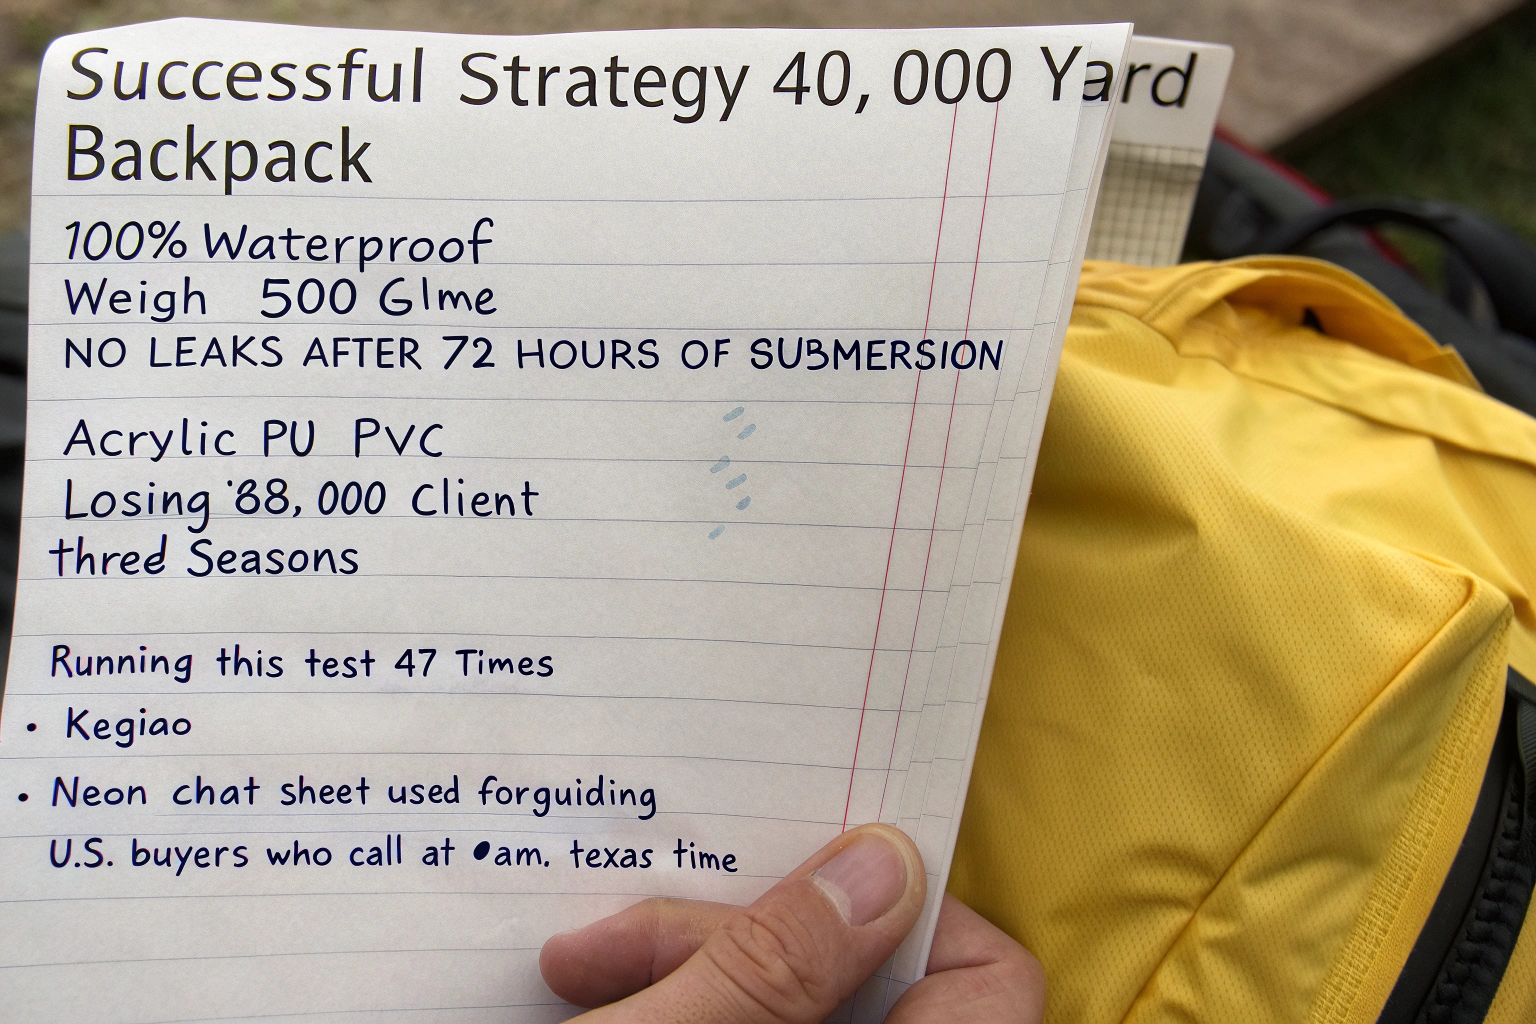 Successful Strategy 40,000 Yard
Backpack
100% Waterproof
Weigh 500 Glme
NO LEAKS AFTER 72 HOURS OF SUBMERSION
Acrylic PU PVC
Losing '88,000 Client
thred Seasons
Running this test 47 Times
• Kegiao
• Neon chat sheet used forguiding
U.S. buyers who call at am. texas time